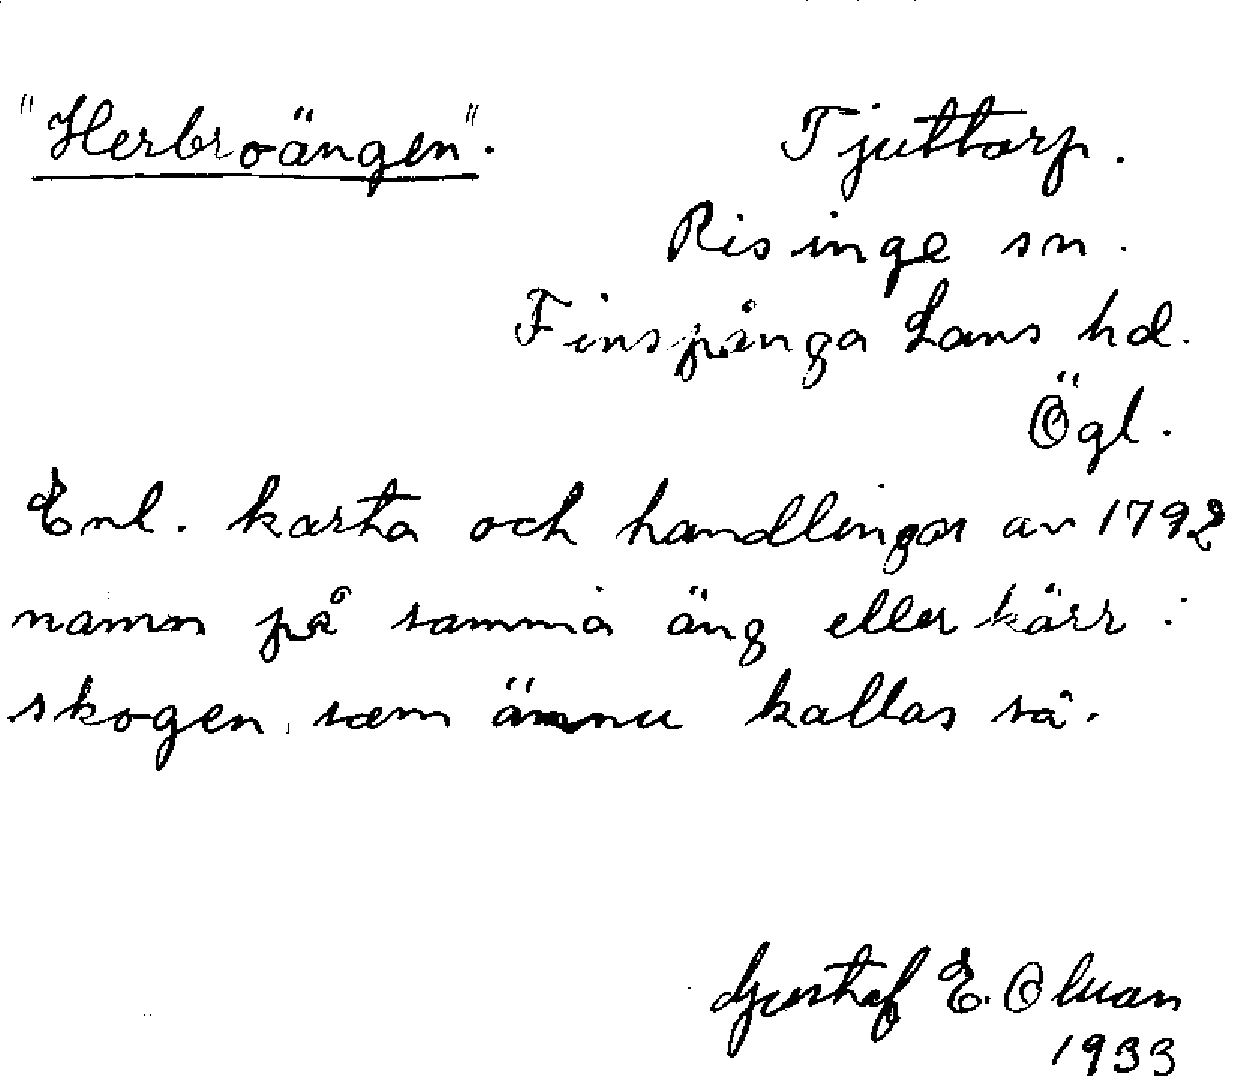 "Herbroängen". Tjuttorp.
Risinge sn.
Finspånga Läns hd.
Ögl.
Enl. karta och handlingar av 1792
namn på samma äng eller kärr i
skogen, som ännu kallas så.
Gustaf E.
1933